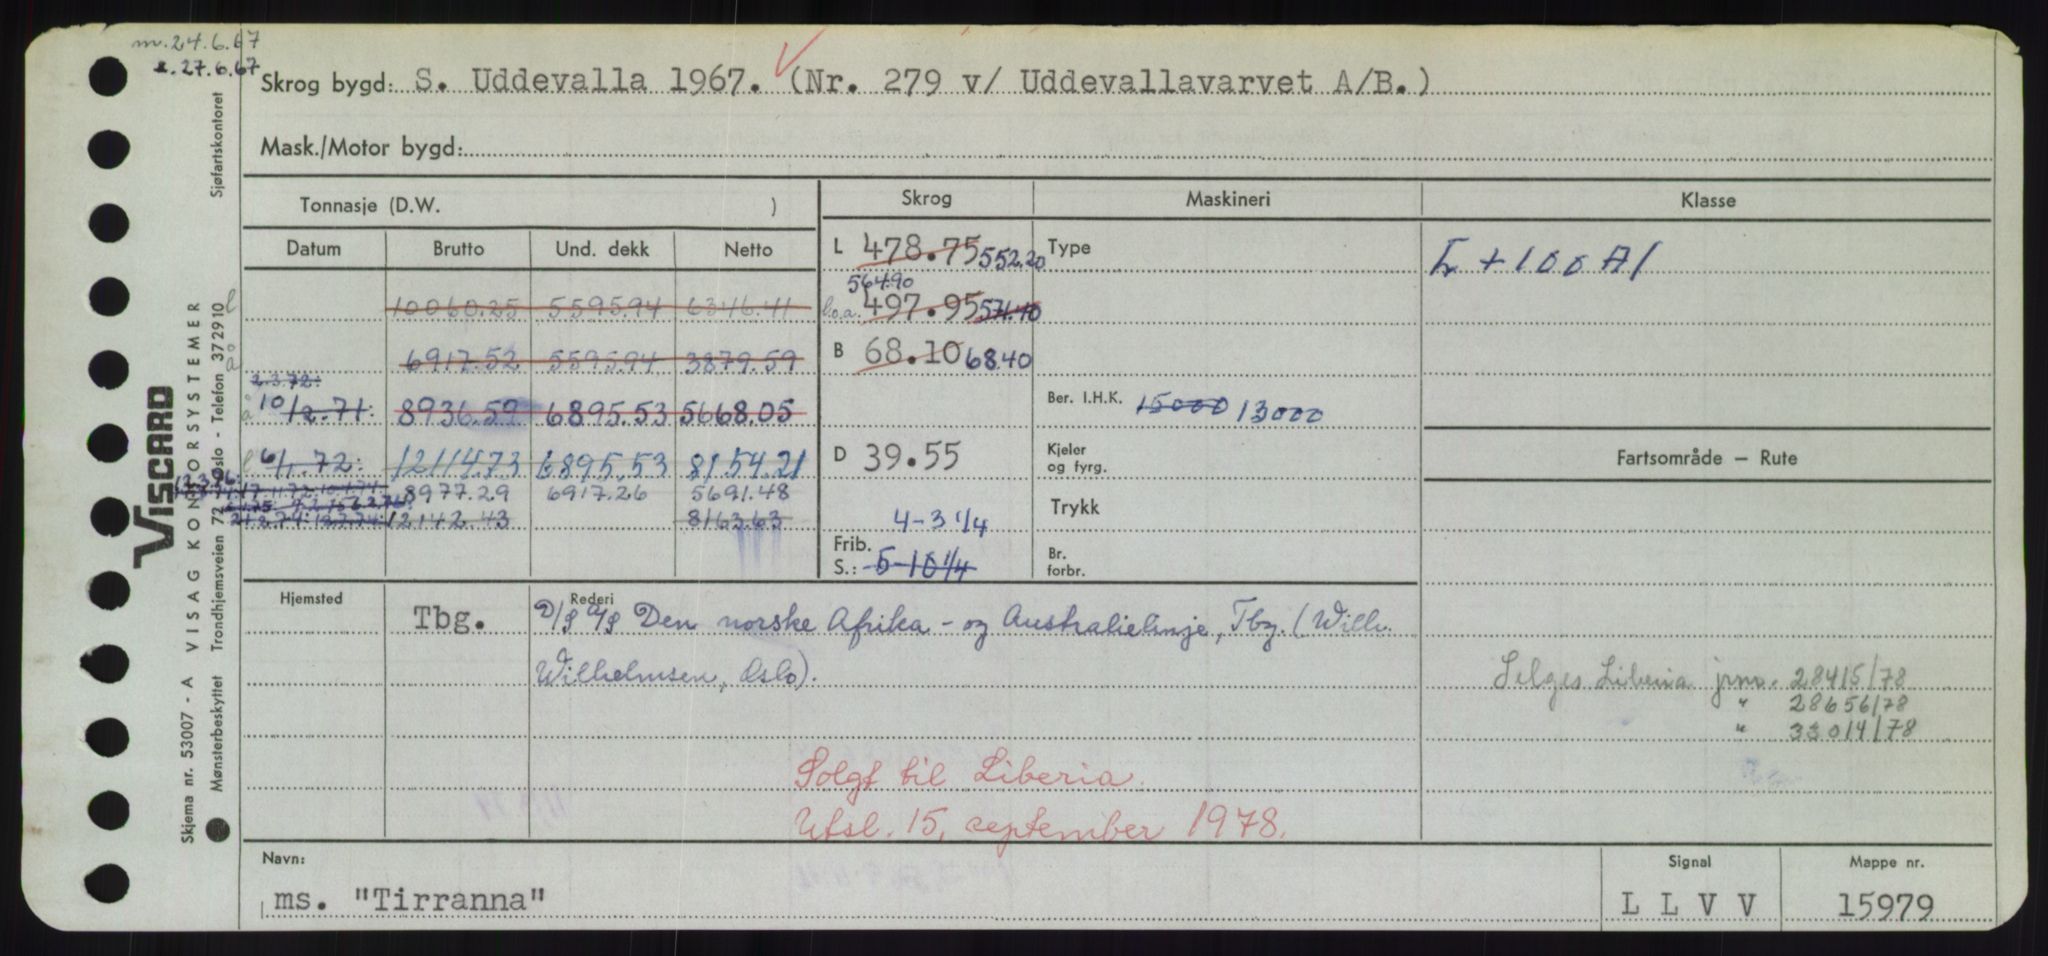 m. 24.6.67
r. 27.6.67
Skrog bygd: S. Uddevalla 1967. (Nr. 279 v/ Uddevallavarvet A/B.)
Mask./Motor bygd:
Tonnasje (D.W. )
Skrog Maskineri Klasse
Datum Brutto Und. dekk Netto
L 478.75 552.20 Type
Ł + 100 A1
564.90
l 10060.25 5595.94 6346.41 l.o.a. 497.95 571.10
å 6917.52 5595.94 3879.59 B 68.10 68.40
2.3.72.
å 10/2.71. 8936.59 6895.53 5668.05 Ber. I.H.K. 15000 13000
l 6/1.72. 12114.73 6895.53 8154.21 D 39.55 Kjeler og fyrg.
Fartsområde – Rute
8977.29 6917.26 5691.48
12142.43 8163.63 4-3 1/4 Trykk
Frib. S.: 5-10 1/4 Br. forbr.
Hjemsted Rederi
Tbg. D/S A/S Den norske Afrika- og Australielinje, Tbg. (Wilh.
Wilhelmsen, Oslo).
Selges Liberia jrnr. 28415/78
" 28656/78
" 33014/78
Solgt til Liberia.
Utsl. 15. september 1978.
Navn: Signal Mappe nr.
ms. "Tirranna" L L V V 15979
VISCARD
Skjema nr. 53007 - A VISAG KONTORSYSTEMER
Mønsterbeskyttet Trondhjemsveien 72 Oslo - Telefon 37 29 10 Sjøfartskontoret